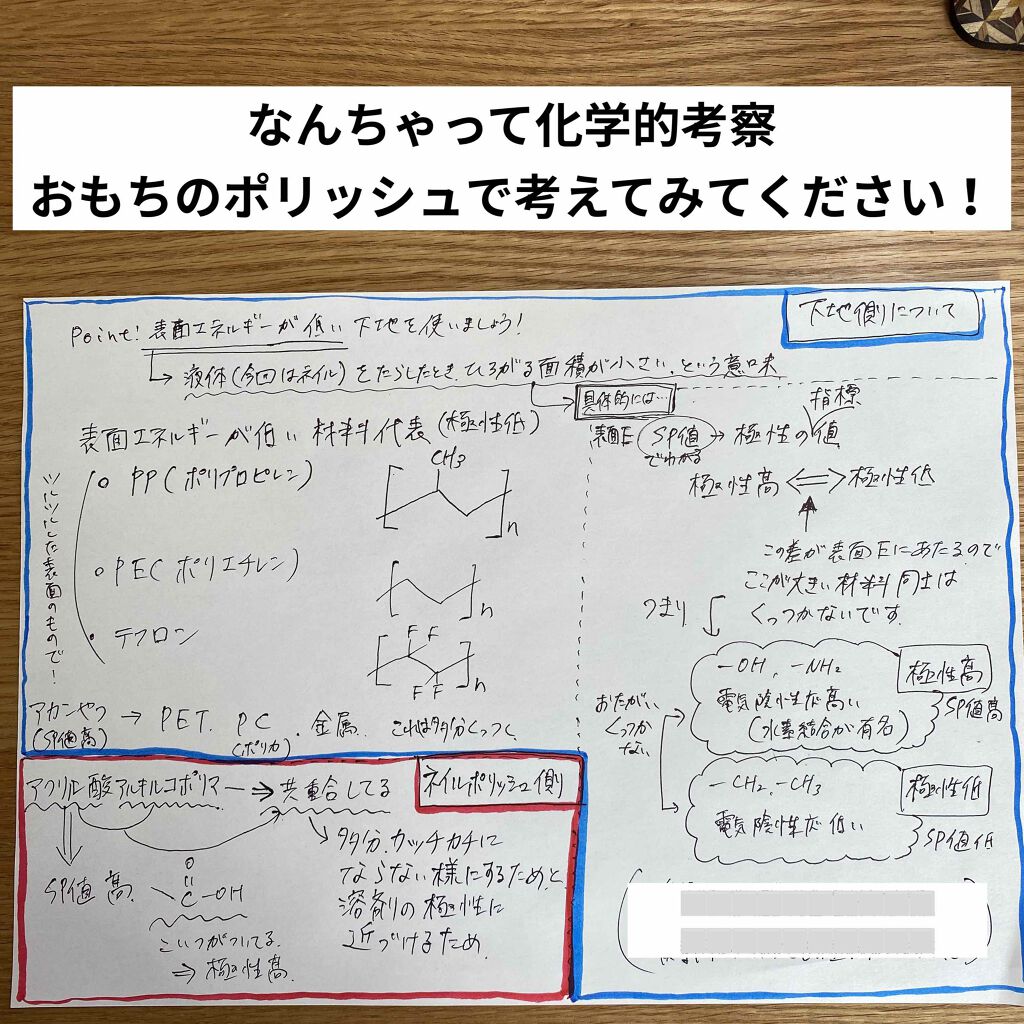 なんちゃって化学的考察
おもちのポリッシュで考えてみてください！
下地側について
Point: 表面エネルギーが低い下地を使いましょう！
→ 液体(今回はネイル)をたらしたとき、ひろがる面積が小さい、という意味
具体的には…
表面エネルギーが低い材料代表(極性低)
ツルツルした表面のもので！
○ PP(ポリプロピレン)
CH3
n
○ PE(ポリエチレン)
n
・テフロン
F F
F F
n
アカンやつ → PET. PC. 金属. これは多分くっつく
(SP値高)
(ポリカ)
指標
表面E SP値 → 極性の値
でわかる
極性高 ⇔ 極性低
この差が表面Eにあたるので
ここが大きい材料同士は
くっつかないです.
つまり
おたがい
くっつか
ない
-OH, -NH2
電気陰性度高い
(水素結合が有名)
極性高
SP値高
-CH2, -CH3
電気陰性度低い
極性低
SP値低
ネイルポリッシュ側
アクリル酸アルキルコポリマー ⇒ 共重合してる
SP値 高.
O
C-OH
こいつがついてる.
⇒ 極性高.
多分、カッチカチに
ならない様にするためと
溶剤の極性に
近づけるため